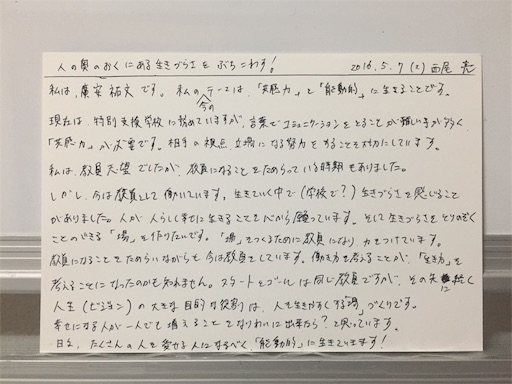 人の奥のおくにある生きづらさをぶちこわす! 2016.5.7(土) 西尾
私は、廣安祐文です。私の今のテーマは、「共感力」と「能動的」に生きることです。
現在は、特別支援学校に努めていますが、言葉でコミュニケーションをとることが難しい子が多く
「共感力」が必要です。相手の視点、立場になる努力をすることを大切にしています。
私は、教員志望でしたが、教員になることをためらっている時期もありました。
しかし、今は教員として働いています。生きていく中で(学校で?)生きづらさを感じること
がありました。人が人らしく幸せに生きることを心から願っています。そして生きづらさをとりのぞく
ことのできる「場」を作りたいです。「場」をつくるために教員になり、力をつけています。
教員になることをためらいながらも今は教員をしています。働き方を考えることが、「生き方」を
考えることになったのかも知れません。スタートとゴールは同じ教員ですが、その先に続く
人生(ビジョン)の大きな目的な役割は、人を生きやすくする"場"づくりです。
幸せになる人が一人でも増えることをなりわいに出来たら?と思っています。
日々、たくさんの人を愛せる人になるべく「能動的」に生きています!